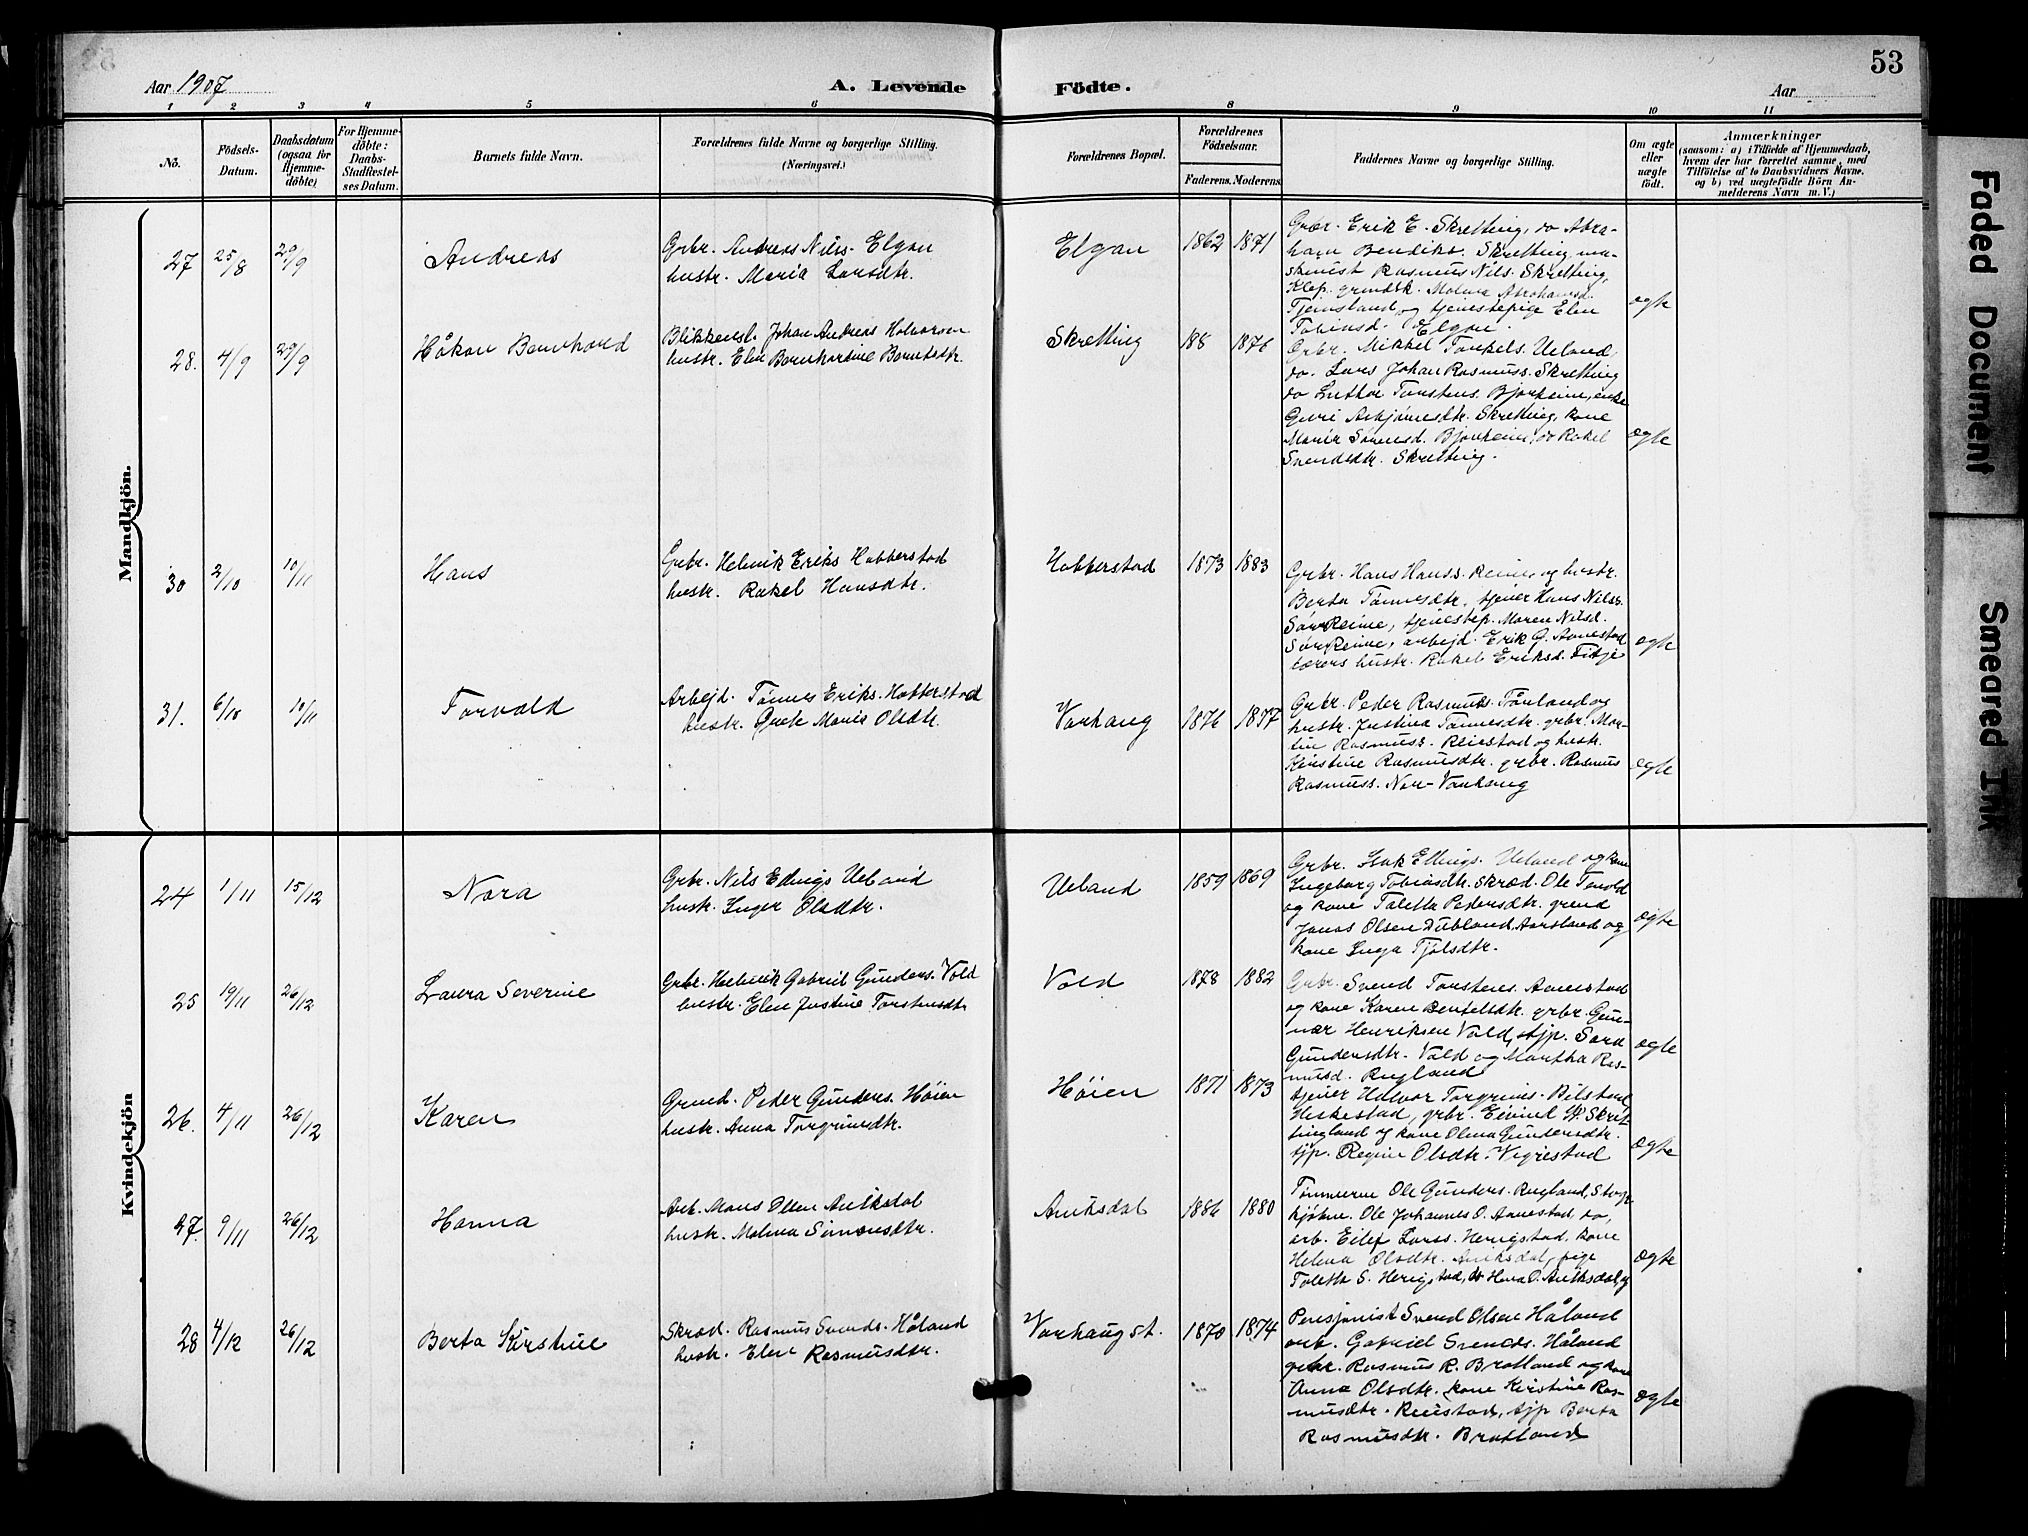 53
Aar 1907
A. Levende Födte.
Aar
1 2 3 4 5 6 8 9 10 11
Nö.
Födsels-Datum.
Daabsdatum (ogsaa for Hjemme-döbte)
For Hjemme-döbte: Daabs-Stadfæstel-ses Datum.
Barnets fulde Navn.
Forældrenes fulde Navne og borgerlige Stilling. (Næringsvei.)
Forældrenes Bopæl.
Forældrenes Födselsaar.
Faderens. Moderens.
Faddernes Navne og borgerlige Stilling.
Om ægte eller uægte födt.
Anmærkninger
(saasom: a) i Tilfælde af Hjemmedaab,
hvem der har forrettet samme, med
Tilföielse af to Daabsvidners Navne,
og b) ved uægtefödte Börn An-
melderens Navn m. V.)
Mandkjön.
27 25/8 29/9 Andreas
Grbr. Andreas Nils. Elgan
hustr. Maria Larsdtr.
Elgan 1862 1871
Grbr. Erik E. Skretting, do Abra-
ham Bendiks. Skretting, ma-
skinist Rasmus Nils. Skretting,
Klep. grundbr. Malena Abrahamsd.
Tjemsland, og tjenestepige Elen
Tobiasd. Elgan.
ægte
28. 4/9 29/9 Håkon Bernhard
Blikkensl. Johan Andreas Halvorsen
hustr. Elen Bernhardine Berntsdtr.
Skretting 188 1876
Grbr. Mikkel Torkels. Ueland,
do. Lars Johan Rasmuss. Skretting
do Luther Torstens. Bjorheim, enke
Guri Asbjørnsdtr. Skretting, kone
Marie Sørensd. Bjorheim, do Rakel
Svendsdtr. Skretting.
ægte
30 2/10 10/11 Hans
Grbr. Helmik Eriks Hobberstad
hustr. Rakel Hansdtr.
Hobberstad 1873 1883
Grbr. Hans Hanss. Reime, og hustr.
Berta Tønnesdtr., tjener Hans Nilss.
SørReime, tjenestep. Maren Nilsd.
SørReime, arbejd. Erik G. Aanestad
lærers hustr. Rakel Eriksd. Fitje
ægte
31. 6/10 10/11 Torvald
Arbejd. Tønnes Eriks. Hobberstad
hustr. Grete Marie Olsdtr.
Varhaug 1876 1877
Grbr. Peder Rasmus. Tånland og
hustr. Justina Tønnesdtr. grbr. Mar-
tin Rasmuss. Reiestad og hustr.
Kirstine Rasmusdtr. grbr. Rasmus
Rasmuss. Nor-Varhaug
ægte
Kvindekjön
24 1/11 15/12 Nora
Grbr. Nils Ellings Ueland
hustr. Inger Olsdtr.
Ueland 1859 1869
Grbr. Isak Ellings. Ueland og kone
Ingeborg Tobiasdtr. skræd. Ole Tenold
og kone Taletta Pedersdtr. grbr.
Jonas Olsen Dubland, Aarsland og
kone Inga Tjølsdtr.
ægte
25 19/11 26/12 Laura Severine
Grbr. Helmik Gabriel Gunders. Vold
hustr. Elen Justine Torstensdtr
Vold 1878 1882
Grbr. Svend Torstens. Aanestad
og kone Karen Bentelsdtr. grbr. Gun-
nar Henriksen Vold, tjp. Sara
Gundersdtr. Vold og Martha Ras-
musd. Rugland
ægte
26. 4/11 26/12 Karen
Grmd. Peder Gunders. Høien
hustr. Anna Torgrimsdtr.
Høien 1871 1873
tjener Halvor Torgrims. Bilstad
Heskestad, grbr. Eivind P. Skret-
tingland og kone Olena Gundersdtr.
tjp. Regine Olsdtr. Vigrestad
ægte
27. 9/11 26/12 Hanna
Arb. Mons Olsen Aniksdal
hustr. Malena Simonsdtr.
Aniksdal 1886 1880
Tømmerm. Ole Gunders. Rugland,
Ole Johannes O. Aanestad, do,
arb. Eilef Larss. Herigstad, kone
Helena Olsdtr. Aniksdal, pige
Taletta S. Herigstad, do Hana O. Aniksdal,
ægte
28 4/12 26/12 Berta Kirstine
Skræd. Rasmus Svends. Håland
hustr. Elen Rasmusdtr.
Varhaug st. 1870 1874
Pensjonist Svend Olsen Håland
arb. Gabriel Svends. Håland
grbr. Rasmus R. Bratland og kone
Anna Olsdtr. kone Kirstine Ras-
musdtr. Reiestad, tjp Berta
Rasmusdtr. Bratland
ægte
Faded Document
Smeared Ink